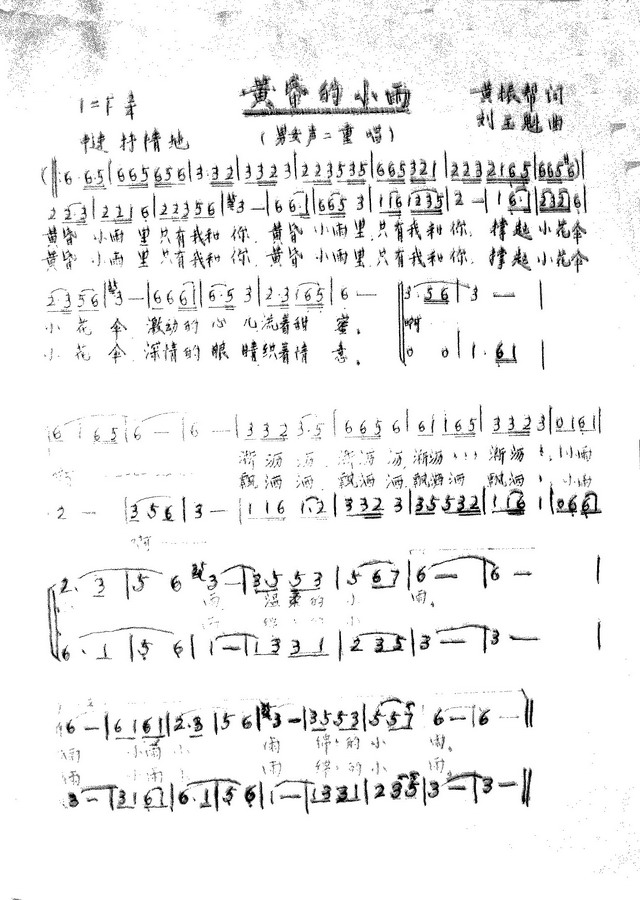 黄昏的小雨
1=F 2/4
黄振帮 词
中速 抒情地
(男女声二重唱)
刘玉魁 曲
(‖: 6· 65 | 665656 | 3·332 | 3323 | 223535 | 665321 | 223 2165 | 6656) |
22·3 | 2216 | 22356 | 3 — | 66·1 | 6653 | 116 1235 | 2 — | 16·1 | 2326 |
黄昏 小雨里只有我和你, 黄昏 小雨里只有我和你, 撑起小花伞
黄昏 小雨里只有我和你, 黄昏 小雨里只有我和你, 撑起小花伞
2·356 | 3 — | 666 | 6·53 | 2·3165 | 6 — | 3·56 | 3 — |
小花伞 激动的心儿流着甜蜜。 啊
小花伞 深情的眼睛织着情意。 0 0 | 1·61 |
6 165 | 6 — | 6 — | 3323·5 | 6656 | 61165 | 3323 | 0161 |
渐沥沥, 渐沥沥, 渐沥 渐沥 小雨
飘洒洒, 飘洒洒, 飘洒洒 飘洒 小雨
2 — | 356 | 3 — | 116 1·2 | 3323 | 35532 | 116 1 | 066 |
啊
2·3 | 56 | 3 — | 3553 | 567 | 6 — | 6 — |
雨 温柔的小雨。
6·1 | 56 | 1 — | 1331 | 235 | 3 — | 3 — |
6 — | 6161 | 2·3 | 56 | 3 — | 3553 | 557 | 6 — | 6 — ‖
雨 小雨小 雨 绵的小雨。
雨 小雨小 雨 绵的小雨。
3 — | 3161 | 6·1 | 56 | 1 — | 1331 | 235 | 3 — | 3 — ‖